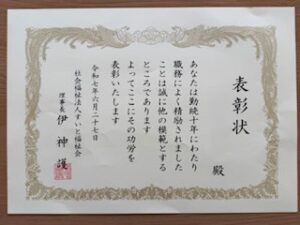 表彰状
殿
あなたは勤続十年にわたり
職務によく精励されました
ことは誠に他の模範とする
ところであります
よってここにその功労を
表彰いたします
令和七年六月二十七日
社会福祉法人すいと福祉会
理事長 伊神護